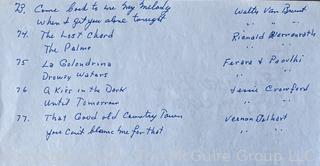 73. Come back to me my melody Walter Van Brunt
When I get you alone tonight " " "
74. The Lost Chord Rienald Werrenrath
The Palms " "
75 La Golondrina Ferara & Paaluhi
Drowsy Waters " "
76 A Kiss in the Dark Jessie Crawford
Until Tomorrow " "
77. That Good old Country Town Vernon Dalhart
You can't blame me for that " "
McGuire Group, LLC